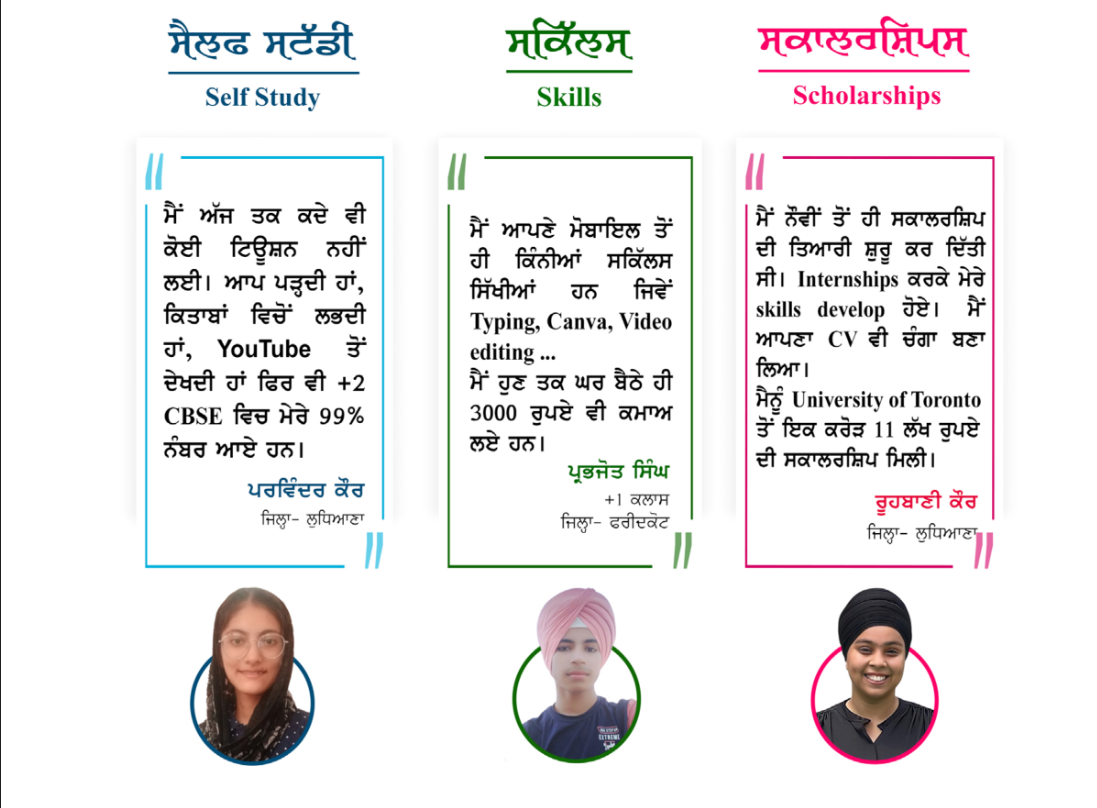 ਸੈਲਫ ਸਟੱਡੀ
Self Study
ਮੈਂ ਅੱਜ ਤਕ ਕਦੇ ਵੀ
ਕੋਈ ਟਿਊਸ਼ਨ ਨਹੀਂ
ਲਈ। ਆਪ ਪੜ੍ਹਦੀ ਹਾਂ,
ਕਿਤਾਬਾਂ ਵਿਚੋਂ ਲਭਦੀ
ਹਾਂ, YouTube ਤੋਂ
ਦੇਖਦੀ ਹਾਂ ਫਿਰ ਵੀ +2
CBSE ਵਿਚ ਮੇਰੇ 99%
ਨੰਬਰ ਆਏ ਹਨ।
ਪਰਵਿੰਦਰ ਕੌਰ
ਜਿਲ੍ਹਾ- ਲੁਧਿਆਣਾ
ਸਕਿੱਲਸ
Skills
ਮੈਂ ਆਪਣੇ ਮੋਬਾਇਲ ਤੋਂ
ਹੀ ਕਿੰਨੀਆਂ ਸਕਿੱਲਸ
ਸਿੱਖੀਆਂ ਹਨ ਜਿਵੇਂ
Typing, Canva, Video
editing ...
ਮੈਂ ਹੁਣ ਤਕ ਘਰ ਬੈਠੇ ਹੀ
3000 ਰੁਪਏ ਵੀ ਕਮਾਅ
ਲਏ ਹਨ।
ਪ੍ਰਭਜੋਤ ਸਿੰਘ
+1 ਕਲਾਸ
ਜਿਲ੍ਹਾ- ਫਰੀਦਕੋਟ
EXTREME
ਸਕਾਲਰਸ਼ਿਪਸ
Scholarships
ਮੈਂ ਨੌਵੀਂ ਤੋਂ ਹੀ ਸਕਾਲਰਸ਼ਿਪ
ਦੀ ਤਿਆਰੀ ਸ਼ੁਰੂ ਕਰ ਦਿੱਤੀ
ਸੀ। Internships ਕਰਕੇ ਮੇਰੇ
skills develop ਹੋਏ। ਮੈਂ
ਆਪਣਾ CV ਵੀ ਚੰਗਾ ਬਣਾ
ਲਿਆ।
ਮੈਨੂੰ University of Toronto
ਤੋਂ ਇਕ ਕਰੋੜ 11 ਲੱਖ ਰੁਪਏ
ਦੀ ਸਕਾਲਰਸ਼ਿਪ ਮਿਲੀ।
ਰੂਹਬਾਣੀ ਕੌਰ
ਜਿਲ੍ਹਾ- ਲੁਧਿਆਣਾ